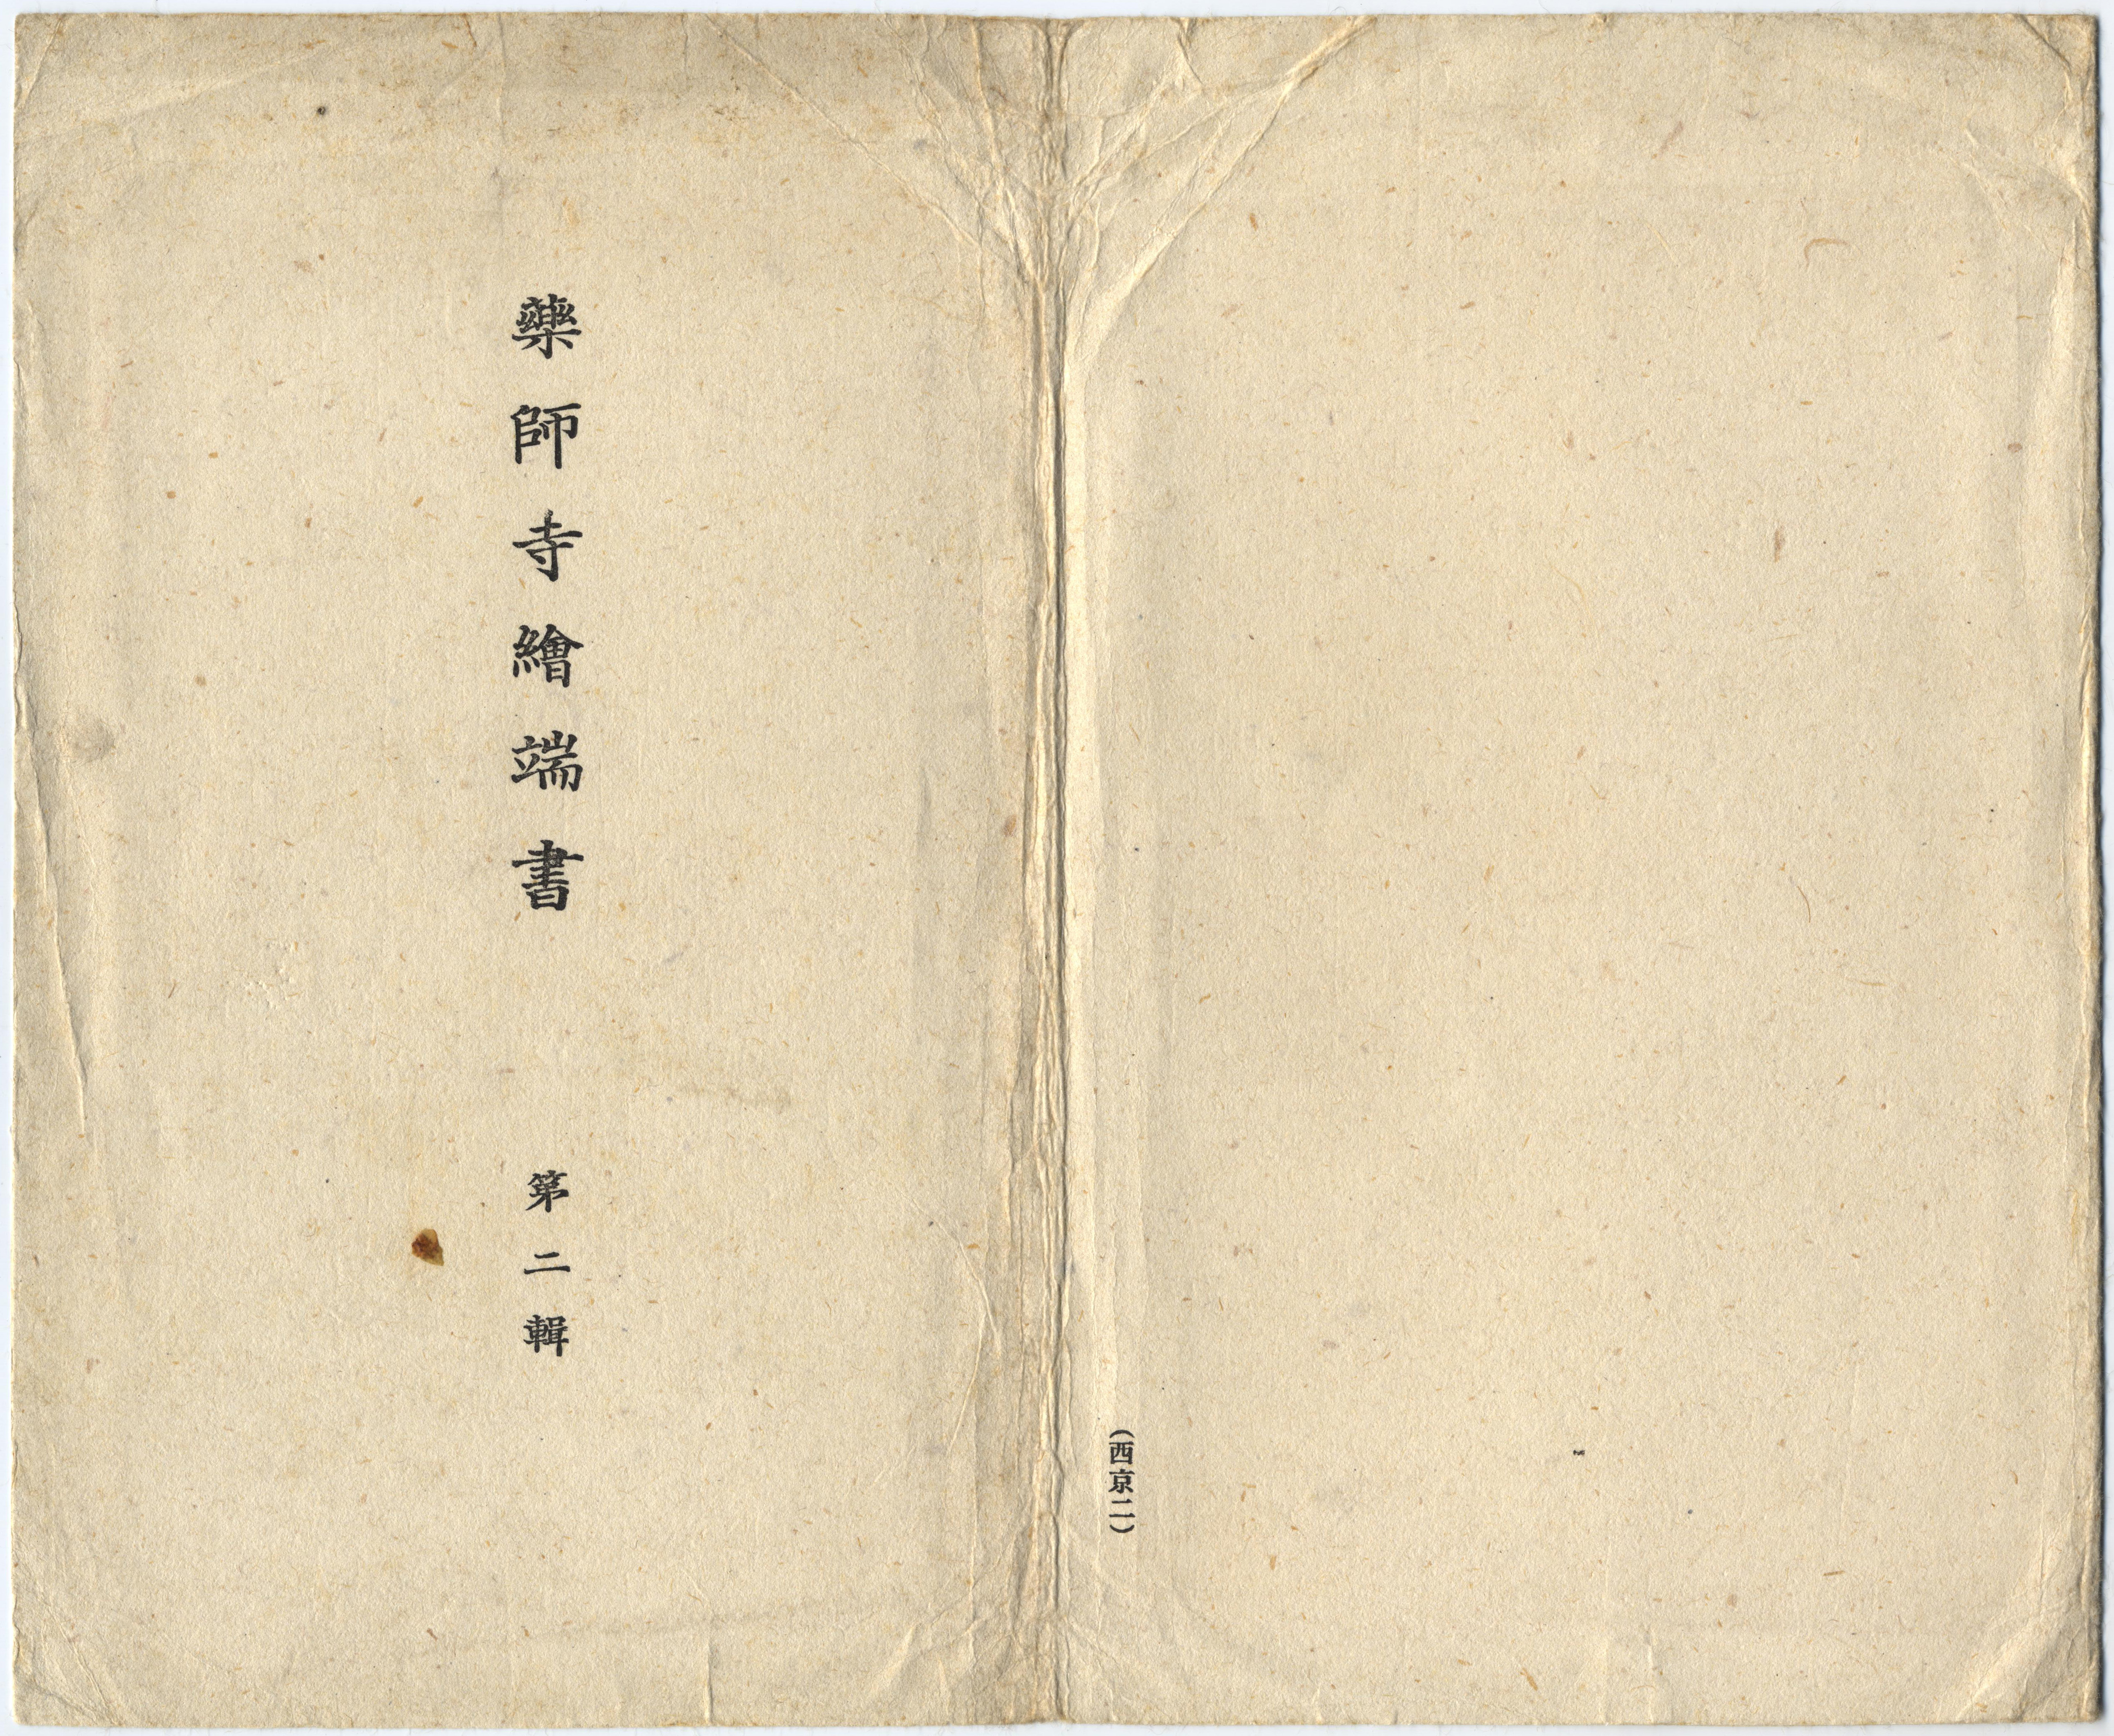 藥師寺繪端書
第二輯
(西京二)